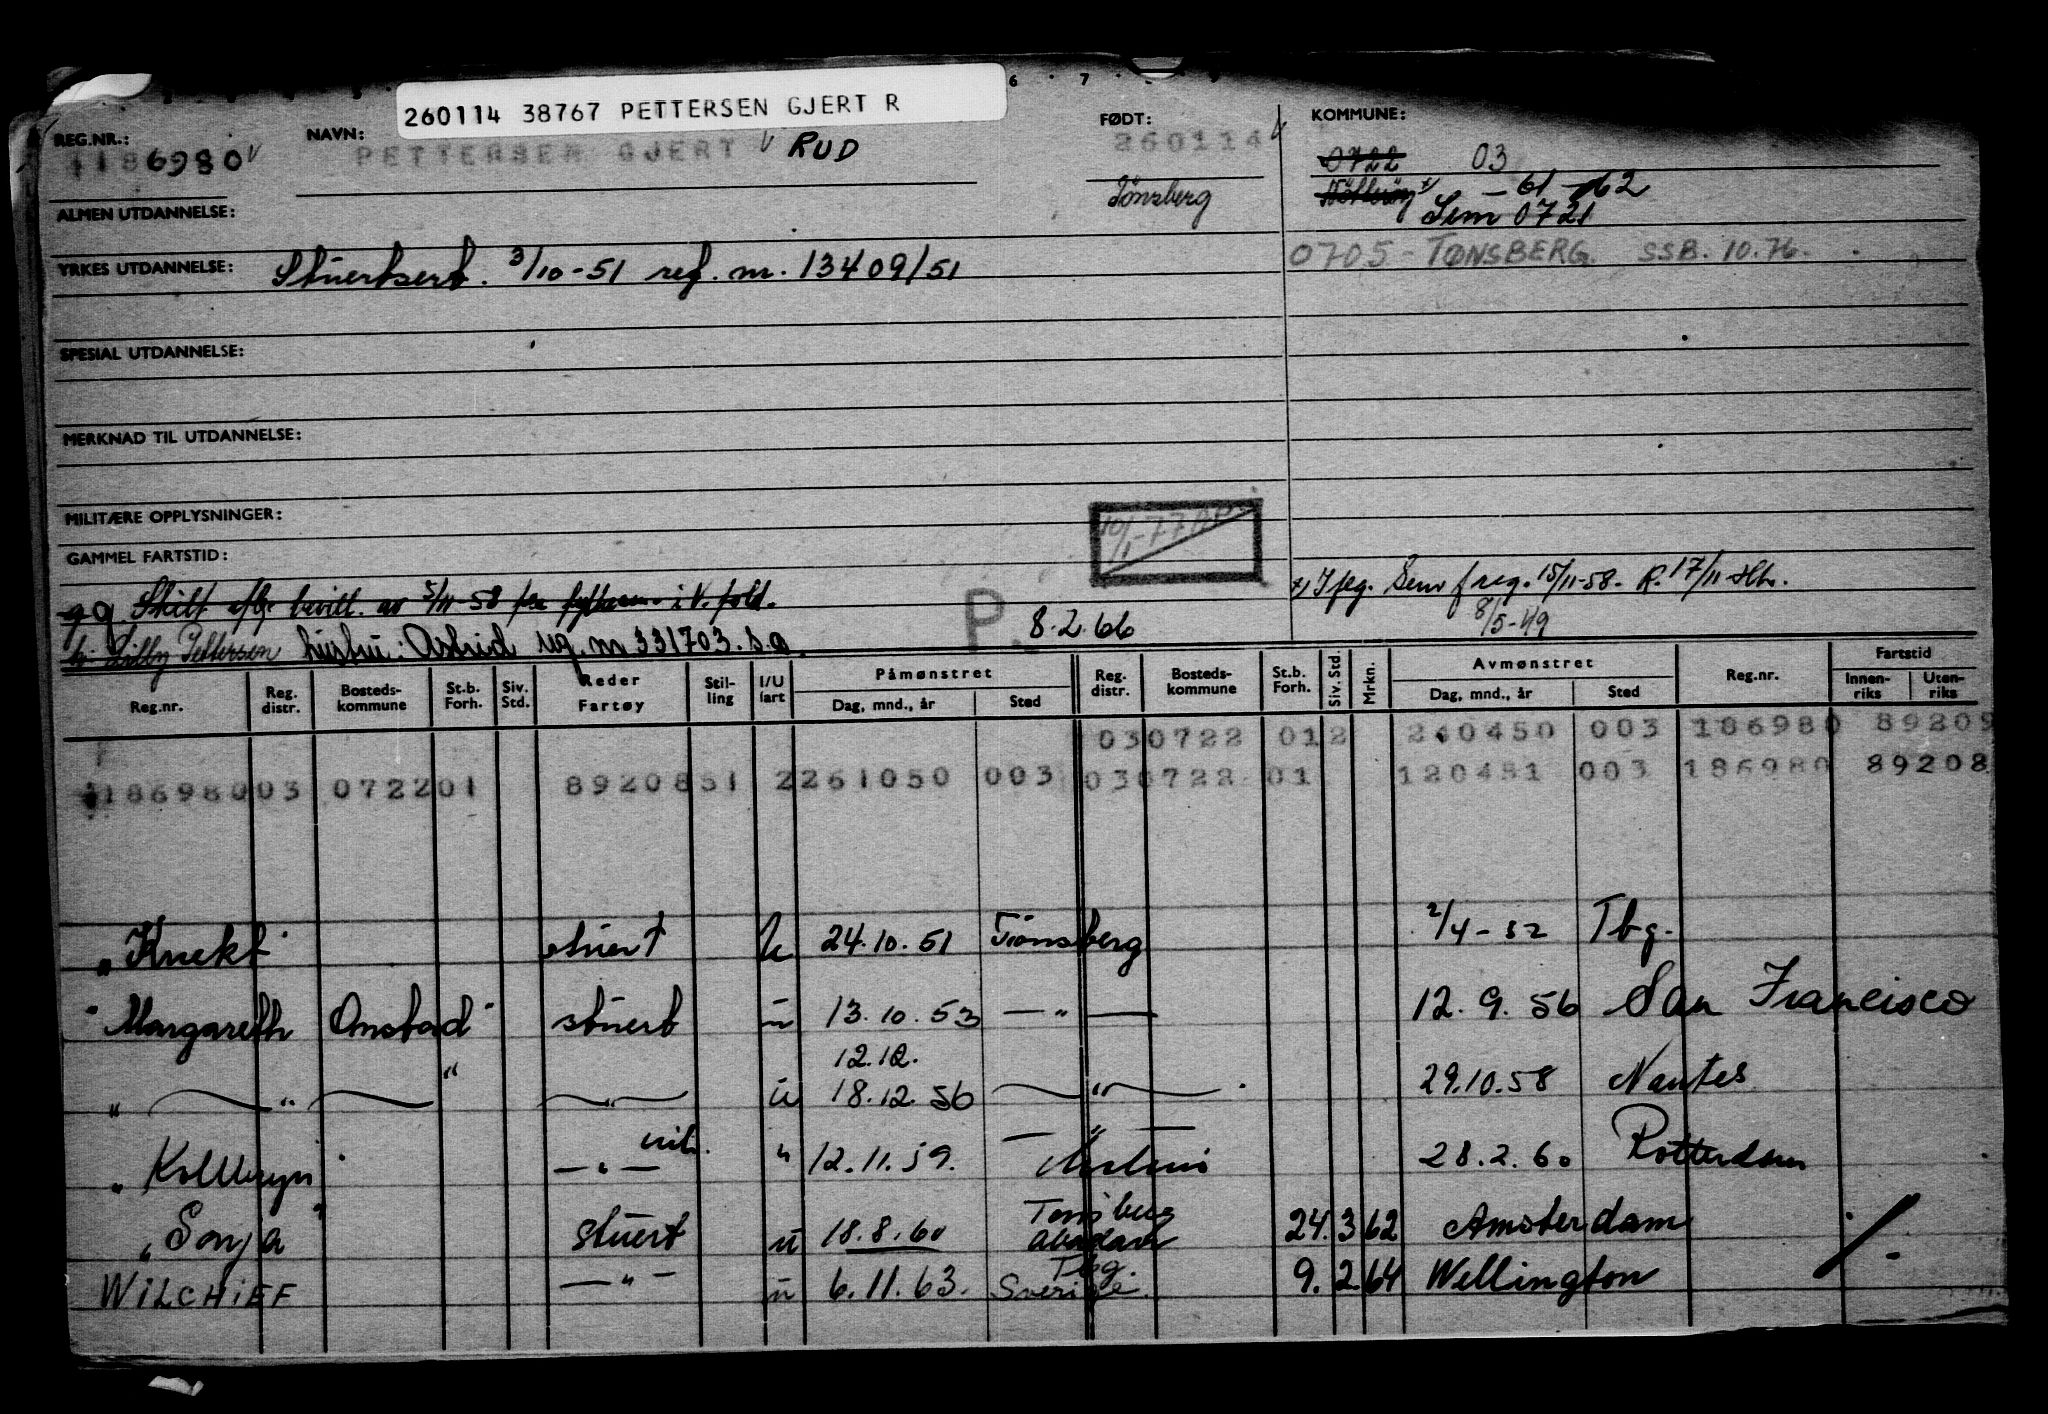 260114 38767 PETTERSEN GJERT R
REG.NR.: NAVN: FØDT: KOMMUNE:
1186980 PETTERSEN GJERT RUD 260114 0722 03
Tönsberg - 61 - 62
Sem 0721
ALMEN UTDANNELSE:
0705 - TØNSBERG. SSB. 10.76.
YRKES UTDANNELSE: Stuertsert. 3/10-51 ref. nr. 13409/51
SPESIAL UTDANNELSE:
MERKNAD TIL UTDANNELSE:
MILITÆRE OPPLYSNINGER:
10/1-77
GAMMEL FARTSTID:
gq. Skilt bevill. av 5/11-58 i V. fold.
x) Iflg. Sem f.reg. 15/11-58. R. 17/11
8/5-49
Pettersen hustru: Astrid 331703. s.a. P. 8.2.66
Reg.nr. Reg. distr. Bosteds-kommune St.b. Forh. Siv. Std. Reder Fartøy Stil-ling I/U fart Påmønstret Dag, mnd., år Sted Reg. distr. Bosteds-kommune St.b. Forh. Siv. Std. Mrkn. Avmønstret Dag, mnd., år Sted Reg.nr. Fartstid Innen-riks Uten-riks
030722 012 240450 003 186980 89209
118698003 072201 8920851 2261050 003 030722 01 120451 003 186980 89208
"Knekt" stuert U 24.10.51 Tönsberg 2/4-52 Tbg.
"Margareth Onstad" stuert u 13.10.53 — " — 12.9.56 San Francisco
12.12.
" — " — " — " — u 18.12.56 — " — 29.10.58 Nantes
— " —
" — " — " 12.11.59. 28.2.60 Rotterdam
Tønsberg
"Sonja" stuert u 18.8.60 Abadan 24.3.62 Amsterdam
Tbg.
WILCHIEF — " — u 6.11.63. Sverige. 9.2.64 Wellington